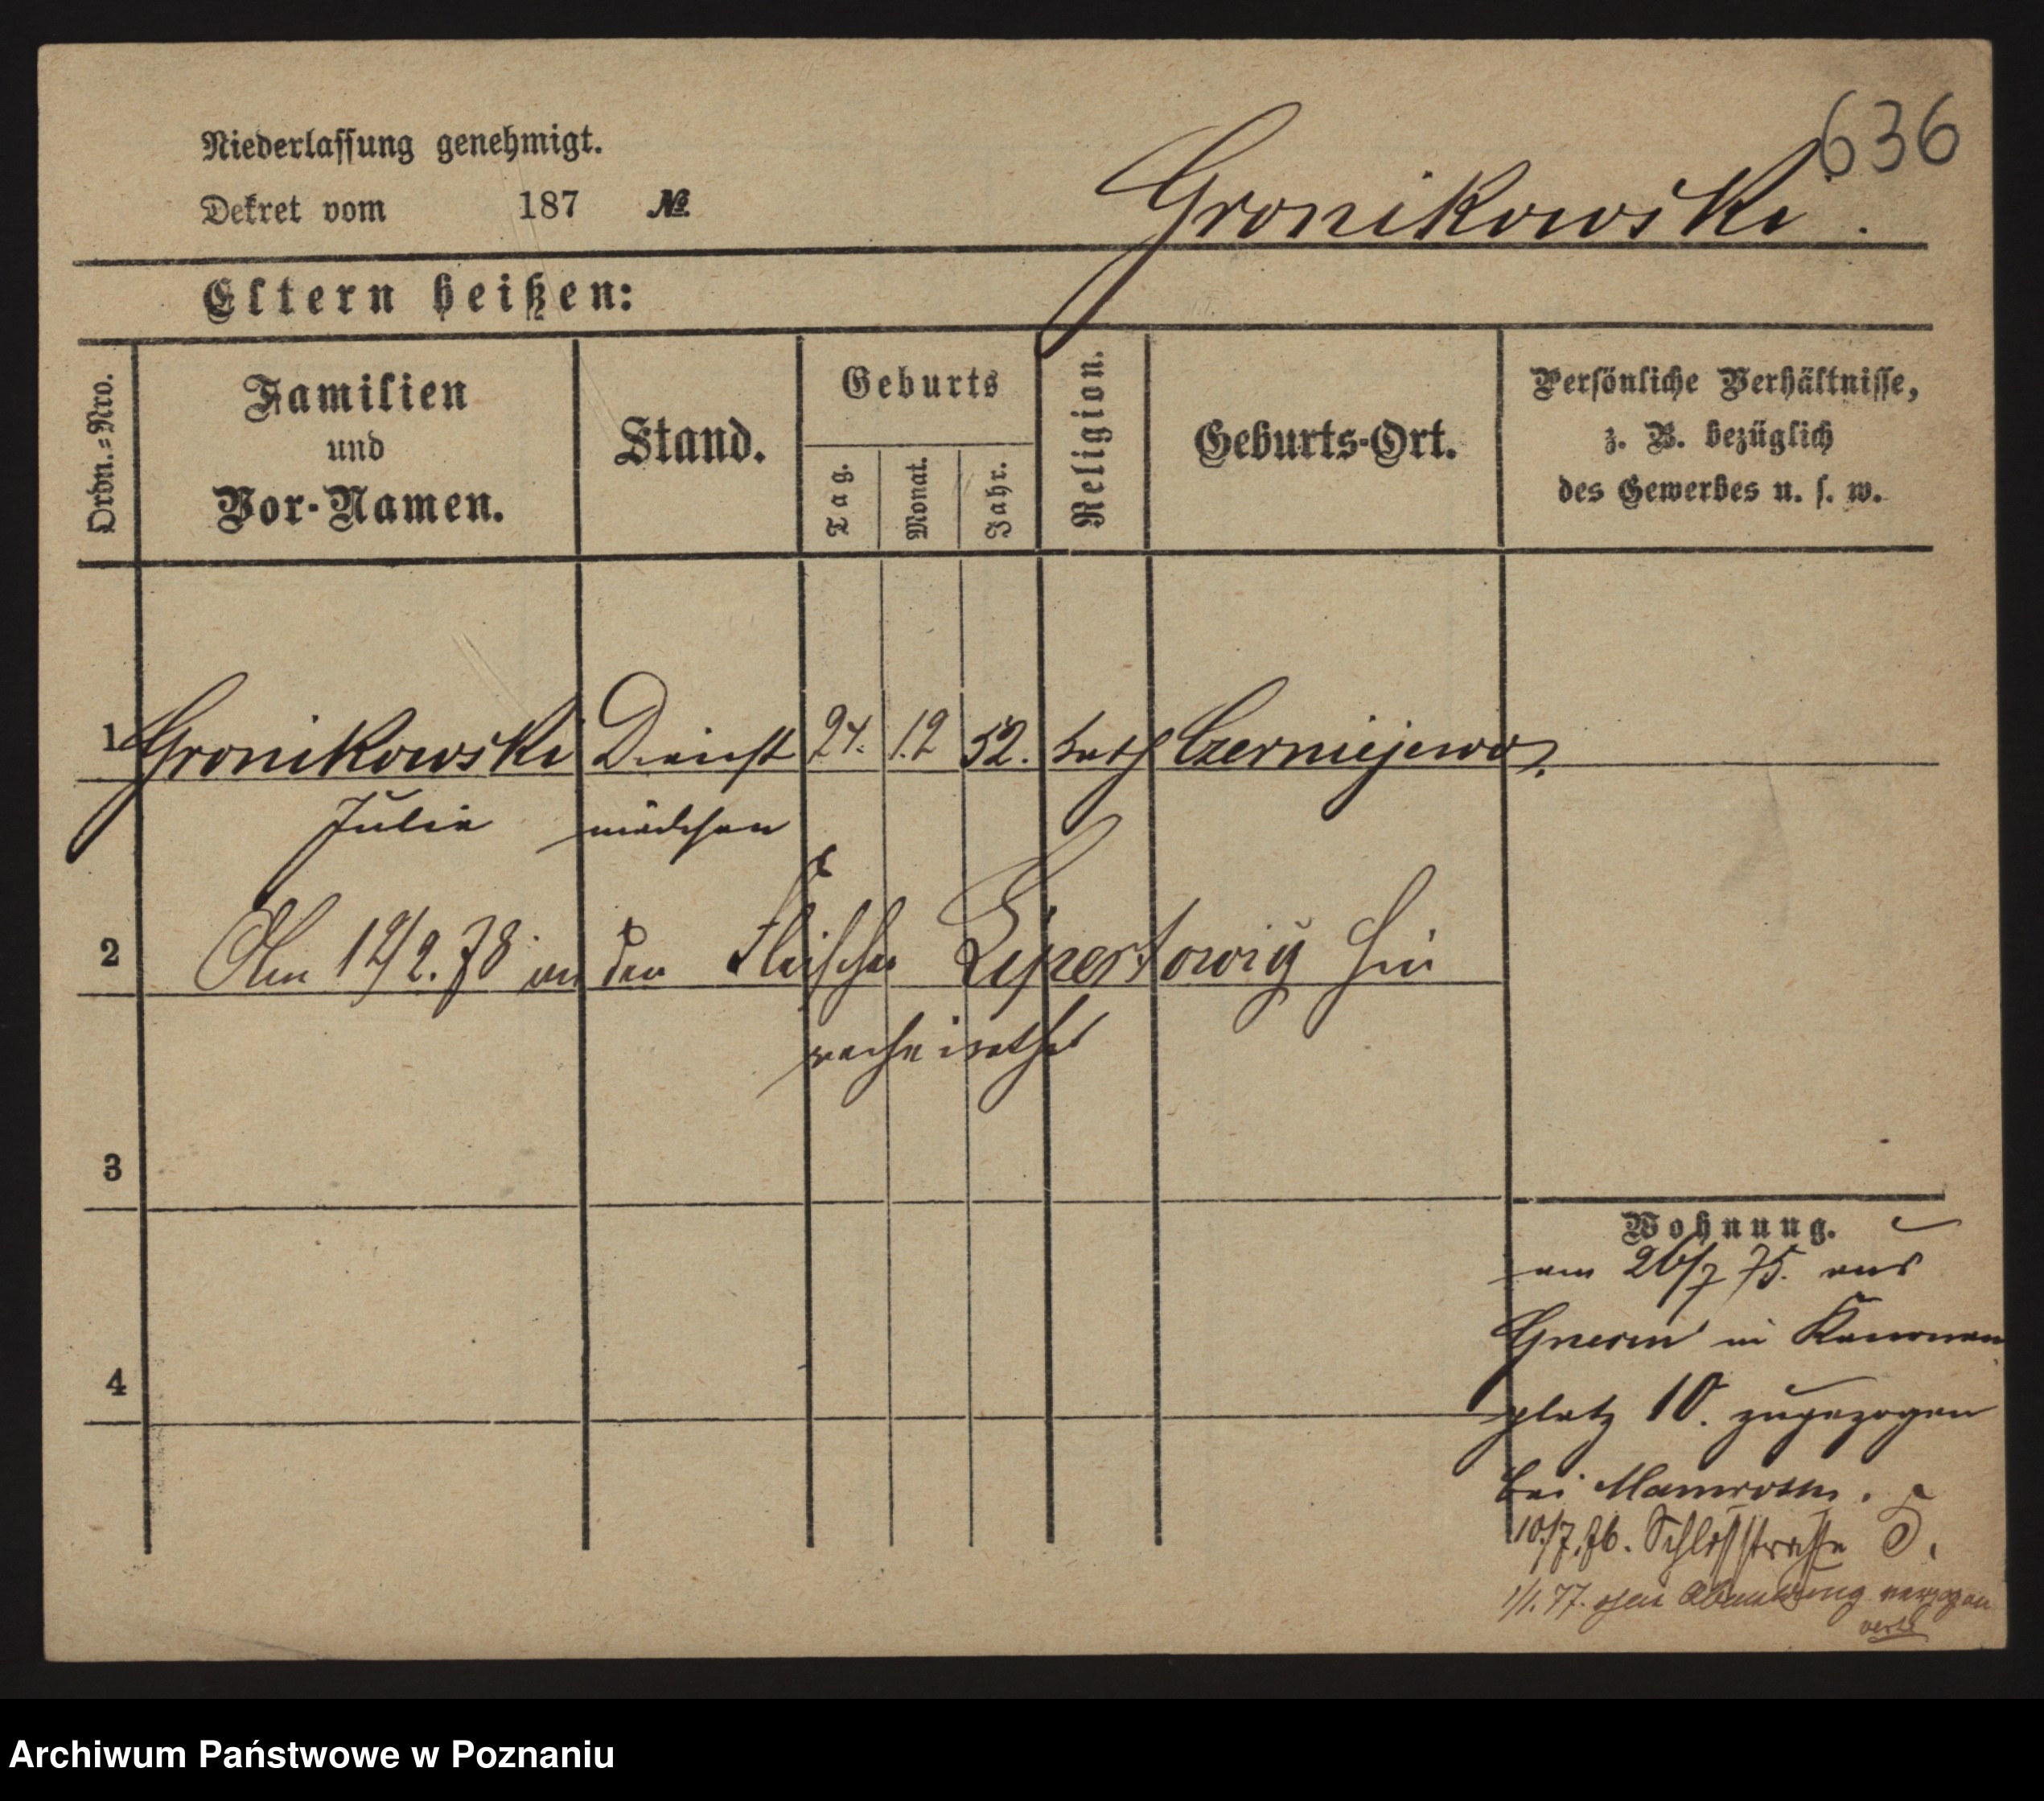 636
Niederlassung genehmigt.
Dekret vom 187 № Gronikowski.
Eltern heißen:
Ordn.=Nro.
Familien und Vor-Namen.
Stand.
Geburts
Tag.
Monat.
Jahr.
Religion.
Geburts-Ort.
Persönliche Verhältnisse,
z. B. bezüglich
des Gewerbes u. s. w.
1 Gronikowski Dienst 24. 12 52. kath Czerniejewo.
Julie mädchen
2 Am 12/2.78 an den Fleischer hier
verheirathet
3
Wohnung.
am 26/7 75. aus
Gnesen in Kanonen
4
platz 10. zugezogen
bei
10/7.76. Schloßstrasse 5.
1/1.77. ohne Abmeldung verzogen
Archiwum Państwowe w Poznaniu